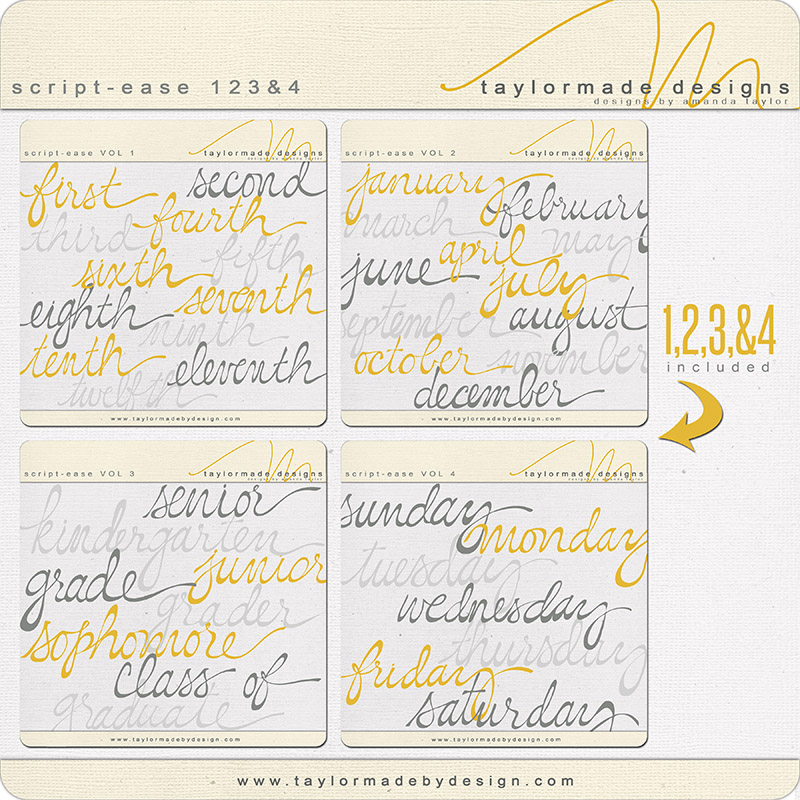 script-ease 123&4
taylormade designs
designs by amanda taylor
script-ease VOL 1
taylormade designs
designs by amanda taylor
first
second
third
fourth
fifth
sixth
seventh
eighth
ninth
tenth
eleventh
twelfth
www.taylormadebydesign.com
script-ease VOL 2
taylormade designs
designs by amanda taylor
january
february
march
april
may
june
july
august
september
october
november
december
www.taylormadebydesign.com
1,2,3,&4
included
script-ease VOL 3
taylormade designs
designs by amanda taylor
senior
kindergarten
junior
grade
grader
sophomore
class of
graduate
www.taylormadebydesign.com
script-ease VOL 4
taylormade designs
designs by amanda taylor
sunday
monday
tuesday
wednesday
thursday
friday
saturday
www.taylormadebydesign.com
www.taylormadebydesign.com